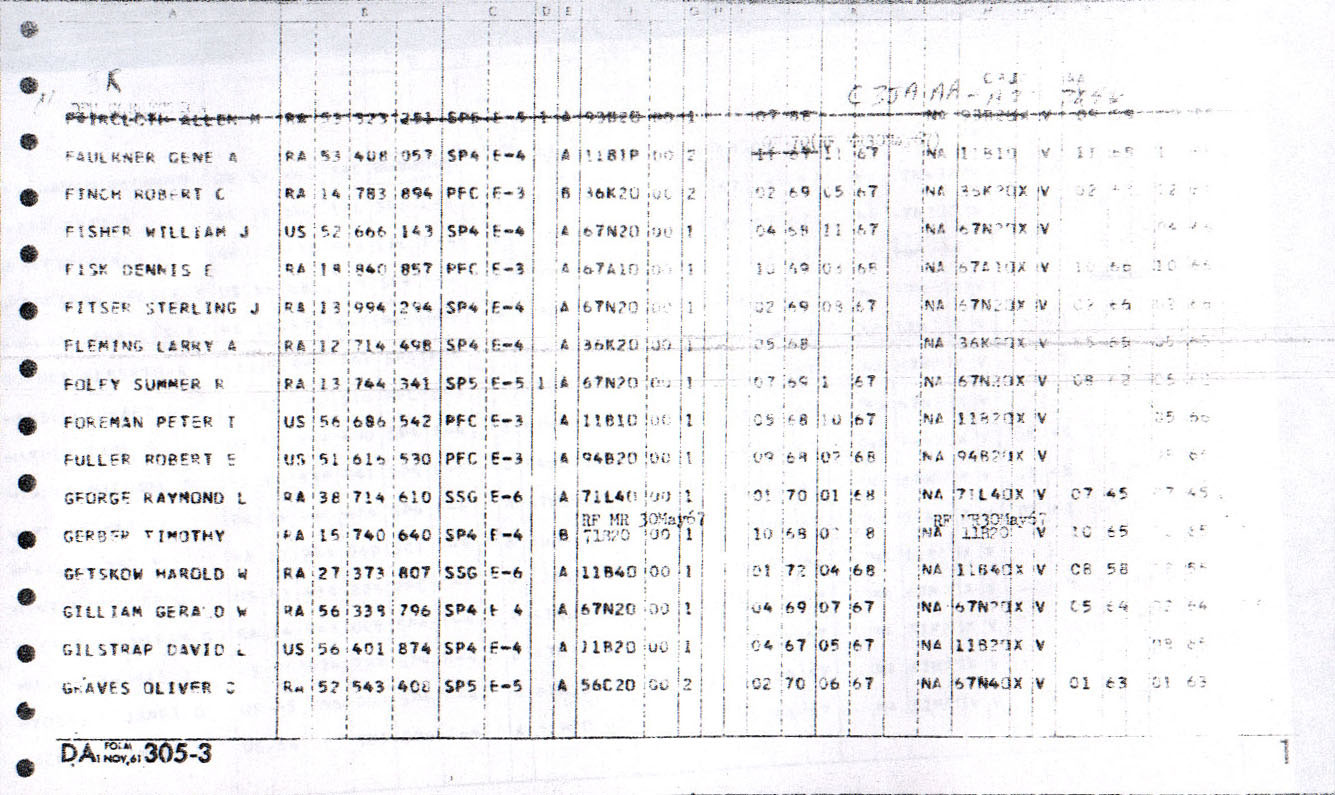 A B C D E
JK
C 3JA1AA
FAIRCLOTH ALLEN M RA 53 323 251 SP5 E-5 1 A 93B20 00 1 07 68 NA
FAULKNER GENE A RA 53 408 057 SP4 E-4 A 11B1P 00 2 11 67 NA 11B10 V 11 65
FINCH ROBERT C RA 14 783 894 PFC E-3 B 36K20 00 2 02 69 05 67 NA 36K20X V 02
FISHER WILLIAM J US 52 666 143 SP4 E-4 A 67N20 00 1 04 68 11 67 NA 67N20X V
FISK DENNIS E RA 19 840 857 PFC E-3 A 67A10 00 1 10 69 03 68 NA 67A10X V 10 66 10 66
FITSER STERLING J RA 13 994 294 SP4 E-4 A 67N20 00 1 02 69 08 67 NA 67N20X V 66
FLEMING LARRY A RA 12 714 498 SP4 E-4 A 36K20 00 1 05 68 NA 36K20X V 05 65
FOLEY SUMMER R RA 13 744 341 SP5 E-5 1 A 67N20 00 1 07 69 1 67 NA 67N20X V 08 62
FOREMAN PETER T US 56 686 542 PFC E-3 A 11B10 00 1 05 68 10 67 NA 11B20X V 05 66
FULLER ROBERT E US 51 616 530 PFC E-3 A 94B20 00 1 09 68 02 68 NA 94B20X V 66
GEORGE RAYMOND L RA 38 714 610 SSG E-6 A 71L40 00 1 01 70 01 68 NA 71L40X V 07 45 07 45
RF MR 30May67 RF MR30May67
GERBER TIMOTHY RA 15 740 640 SP4 E-4 B 71B20 00 1 10 68 8 NA 11B20 V 10 65 65
GETSKOW HAROLD W RA 27 373 807 SSG E-6 A 11B40 00 1 01 72 04 68 NA 11B40X V 08 58
GILLIAM GERALD W RA 56 339 796 SP4 E 4 A 67N20 00 1 04 69 07 67 NA 67N20X V 05 64 64
GILSTRAP DAVID L US 56 401 874 SP4 E-4 A 11B20 00 1 04 67 05 67 NA 11B20X V
GRAVES OLIVER C RA 52 543 408 SP5 E-5 A 56C20 00 2 02 70 06 67 NA 67N40X V 01 63 01 63
DA FORM 1 NOV, 61 305-3 1